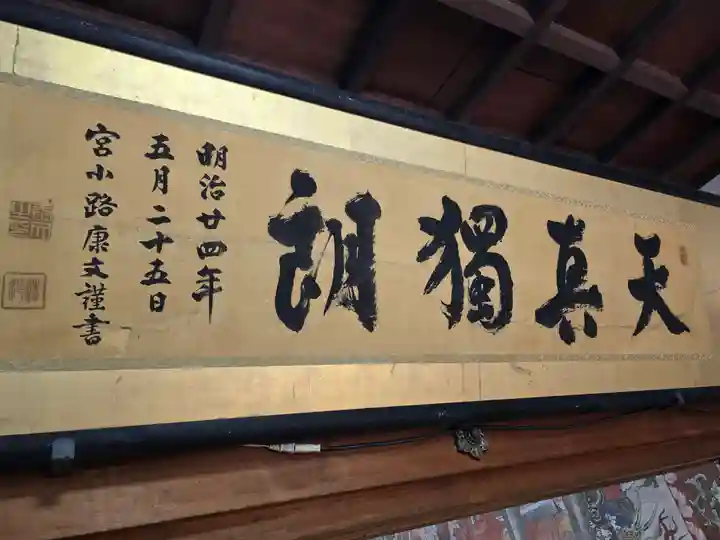 天真獨朗
明治廿四年
五月二十五日
宮小路康文謹書